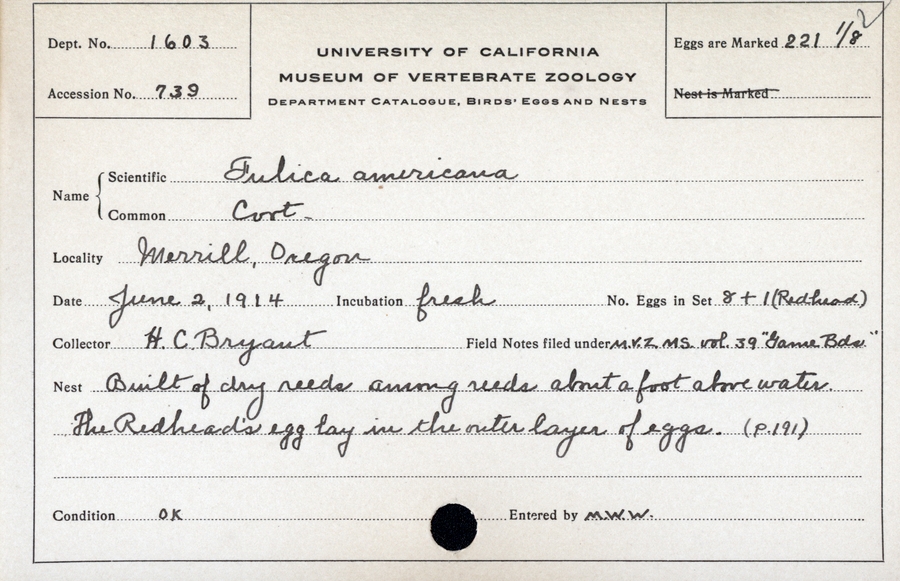 Dept. No. 1603
Accession No. 739
UNIVERSITY OF CALIFORNIA
MUSEUM OF VERTEBRATE ZOOLOGY
DEPARTMENT CATALOGUE, BIRDS' EGGS AND NESTS
Eggs are Marked 221 1/8 2
Nest is Marked
Name
Scientific Fulica americana
Common Coot
Locality Merrill, Oregon
Date June 2, 1914 Incubation fresh No. Eggs in Set 8 + 1 (Redhead)
Collector H. C. Bryant Field Notes filed under M.V.Z MS. vol. 39 "Game Bds."
Nest Built of dry reeds among reeds about a foot above water.
The Redhead's egg lay in the outer layer of eggs. (p.191)
Condition OK Entered by M.W.W.